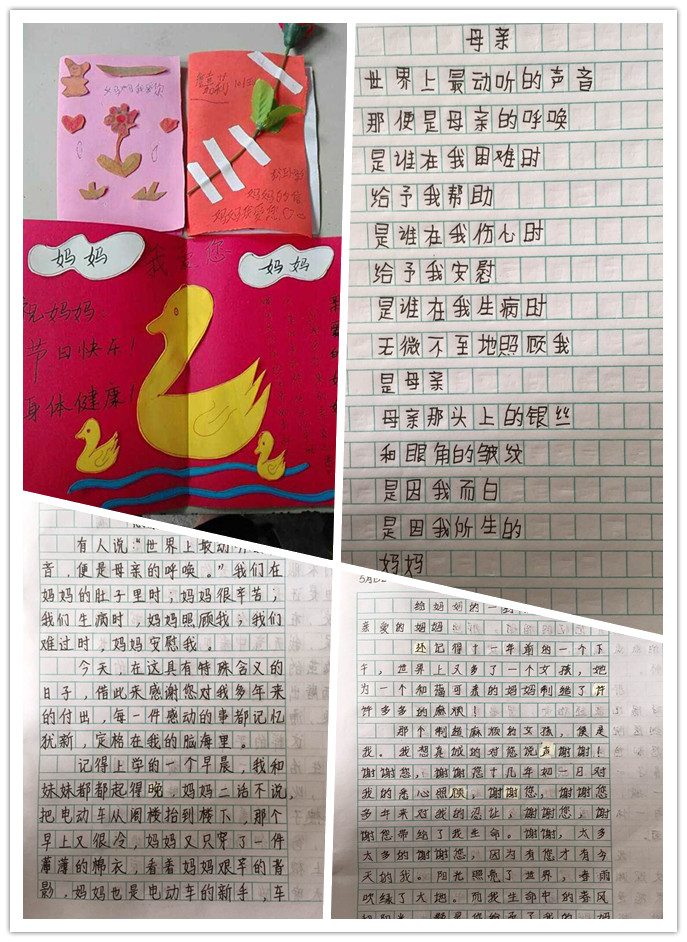 妈妈
我爱您
妈妈
祝妈妈:
节日快乐!
身体健康!
妈妈我爱您
母亲
世界上最动听的声音
那便是母亲的呼唤
是谁在我困难时
给予我帮助
是谁在我伤心时
给予我安慰
是谁在我生病时
无微不至地照顾我
是母亲
母亲那头上的银丝
和眼角的皱纹
是因我而白
是因我所生的
妈妈
有人说“世界上最动听
音,便是母亲的呼唤。”我们在
妈妈的肚子里时,妈妈很辛苦;
我们生病时,妈妈照顾我;我们
难过时,妈妈安慰我。
今天,在这具有特殊含义的
日子,借此来感谢您对我多年来
的付出,每一件感动的事都记忆
犹新,定格在我的脑海里。
记得上学的一个早晨,我和
妹妹都都起得晚,妈妈二话不说,
把电动车从阁楼抬到楼下,那个
早上又很冷,妈妈又只穿了一件
薄薄的棉衣,看着妈妈艰辛的背
影,妈妈也是电动车的新手,车
给妈妈的一封
亲爱的妈妈
还记得十一年前的一个下
午,世界上又多了一个女孩,她
为一个和蔼可亲的妈妈制造了许
许多多的麻烦!
那个制造麻烦的女孩,便是
我。我想真诚的对您说声谢谢!
谢谢您,谢谢您十几年如一日对
我的悉心照顾,谢谢您,谢谢您
多年来对我的忍让,谢谢您,谢
谢您带给了我生命。谢谢,太多
太多的谢谢您,因为有您才有今
天的我。阳光照亮了世界,春雨
吹绿了大地。而我生命中的春风